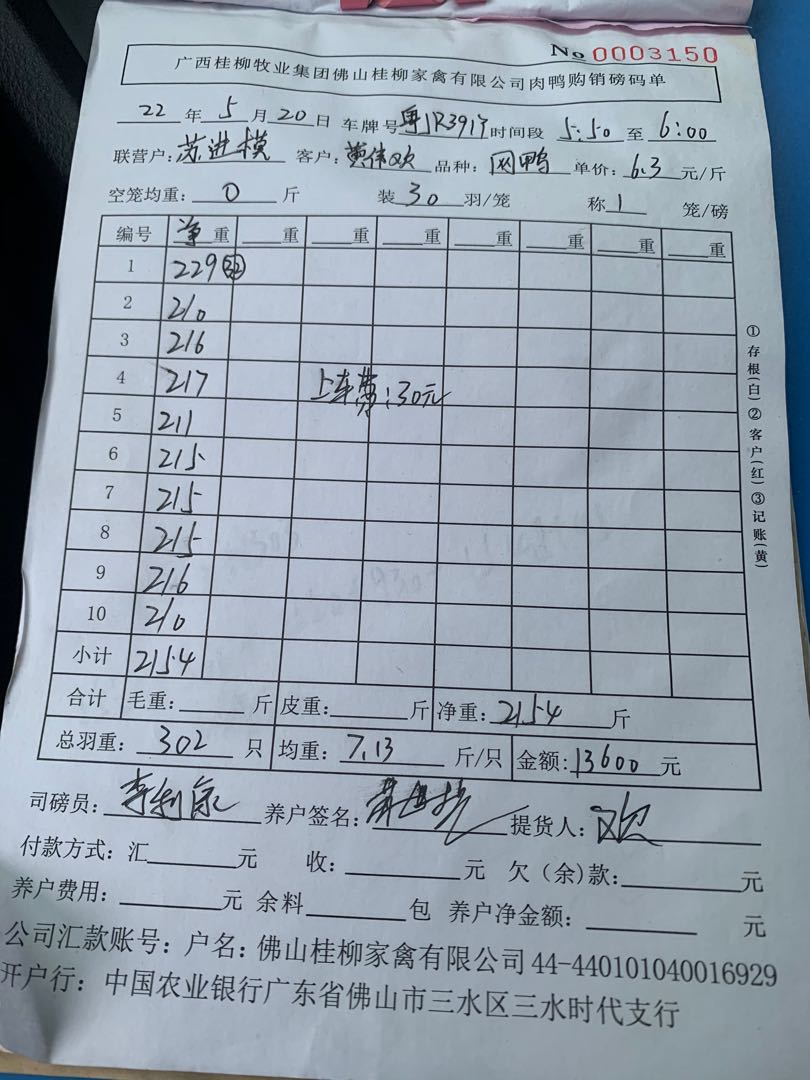 No 0003150
广西桂柳牧业集团佛山桂柳家禽有限公司肉鸭购销磅码单
22 年 5 月 20 日 车牌号 粤JR391Y 时间段 5:50 至 6:00
联营户: 苏进模 客户: 黄伟欢 品种: 网鸭 单价: 6.3 元/斤
空笼均重: 0 斤 装 30 羽/笼 称 1 笼/磅
编号 净重 重 重 重 重 重 重 重
1 229 32
2 210
3 216
4 217 上车费:30元
5 211
6 215
7 215
8 215
9 216
10 210
小计 2154
合计 毛重: 斤 皮重: 斤 净重: 2154 斤
总羽重: 302 只 均重: 7.13 斤/只 金额: 13600 元
司磅员: 李利 养户签名: 提货人: 欢
付款方式: 汇 元 收: 元 欠(余)款: 元
养户费用: 元 余料 包 养户净金额: 元
公司汇款账号: 户名: 佛山桂柳家禽有限公司 44-440101040016929
开户行: 中国农业银行广东省佛山市三水区三水时代支行
①存根(白)②客户(红)③记账(黄)